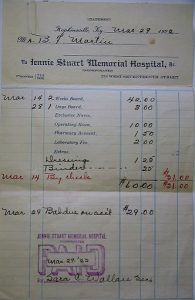 STATEMENT
Hopkinsville, Ky., Mar 29 1922
Mr. B. F. Martin
To Jennie Stuart Memorial Hospital, Dr.
INCORPORATED
WEST SEVENTEENTH STREET
Mar 14 2 Weeks Board, 40.00
28 1 days Board, 3.00
Exclusive Nurse,
Operating Room, 10.00
Pharmacy Account, 1.50
Laboratory Fee, 2.00
Extras:
Dressing 1.25
Binder .25
Mar 14 By check $21.00
$60.00 $21.00
Mar 29 Baldue on acct $29.00
JENNIE STUART MEMORIAL HOSPITAL
INCORPORATED
PAID
Mar 29 '22
Sara Wallace